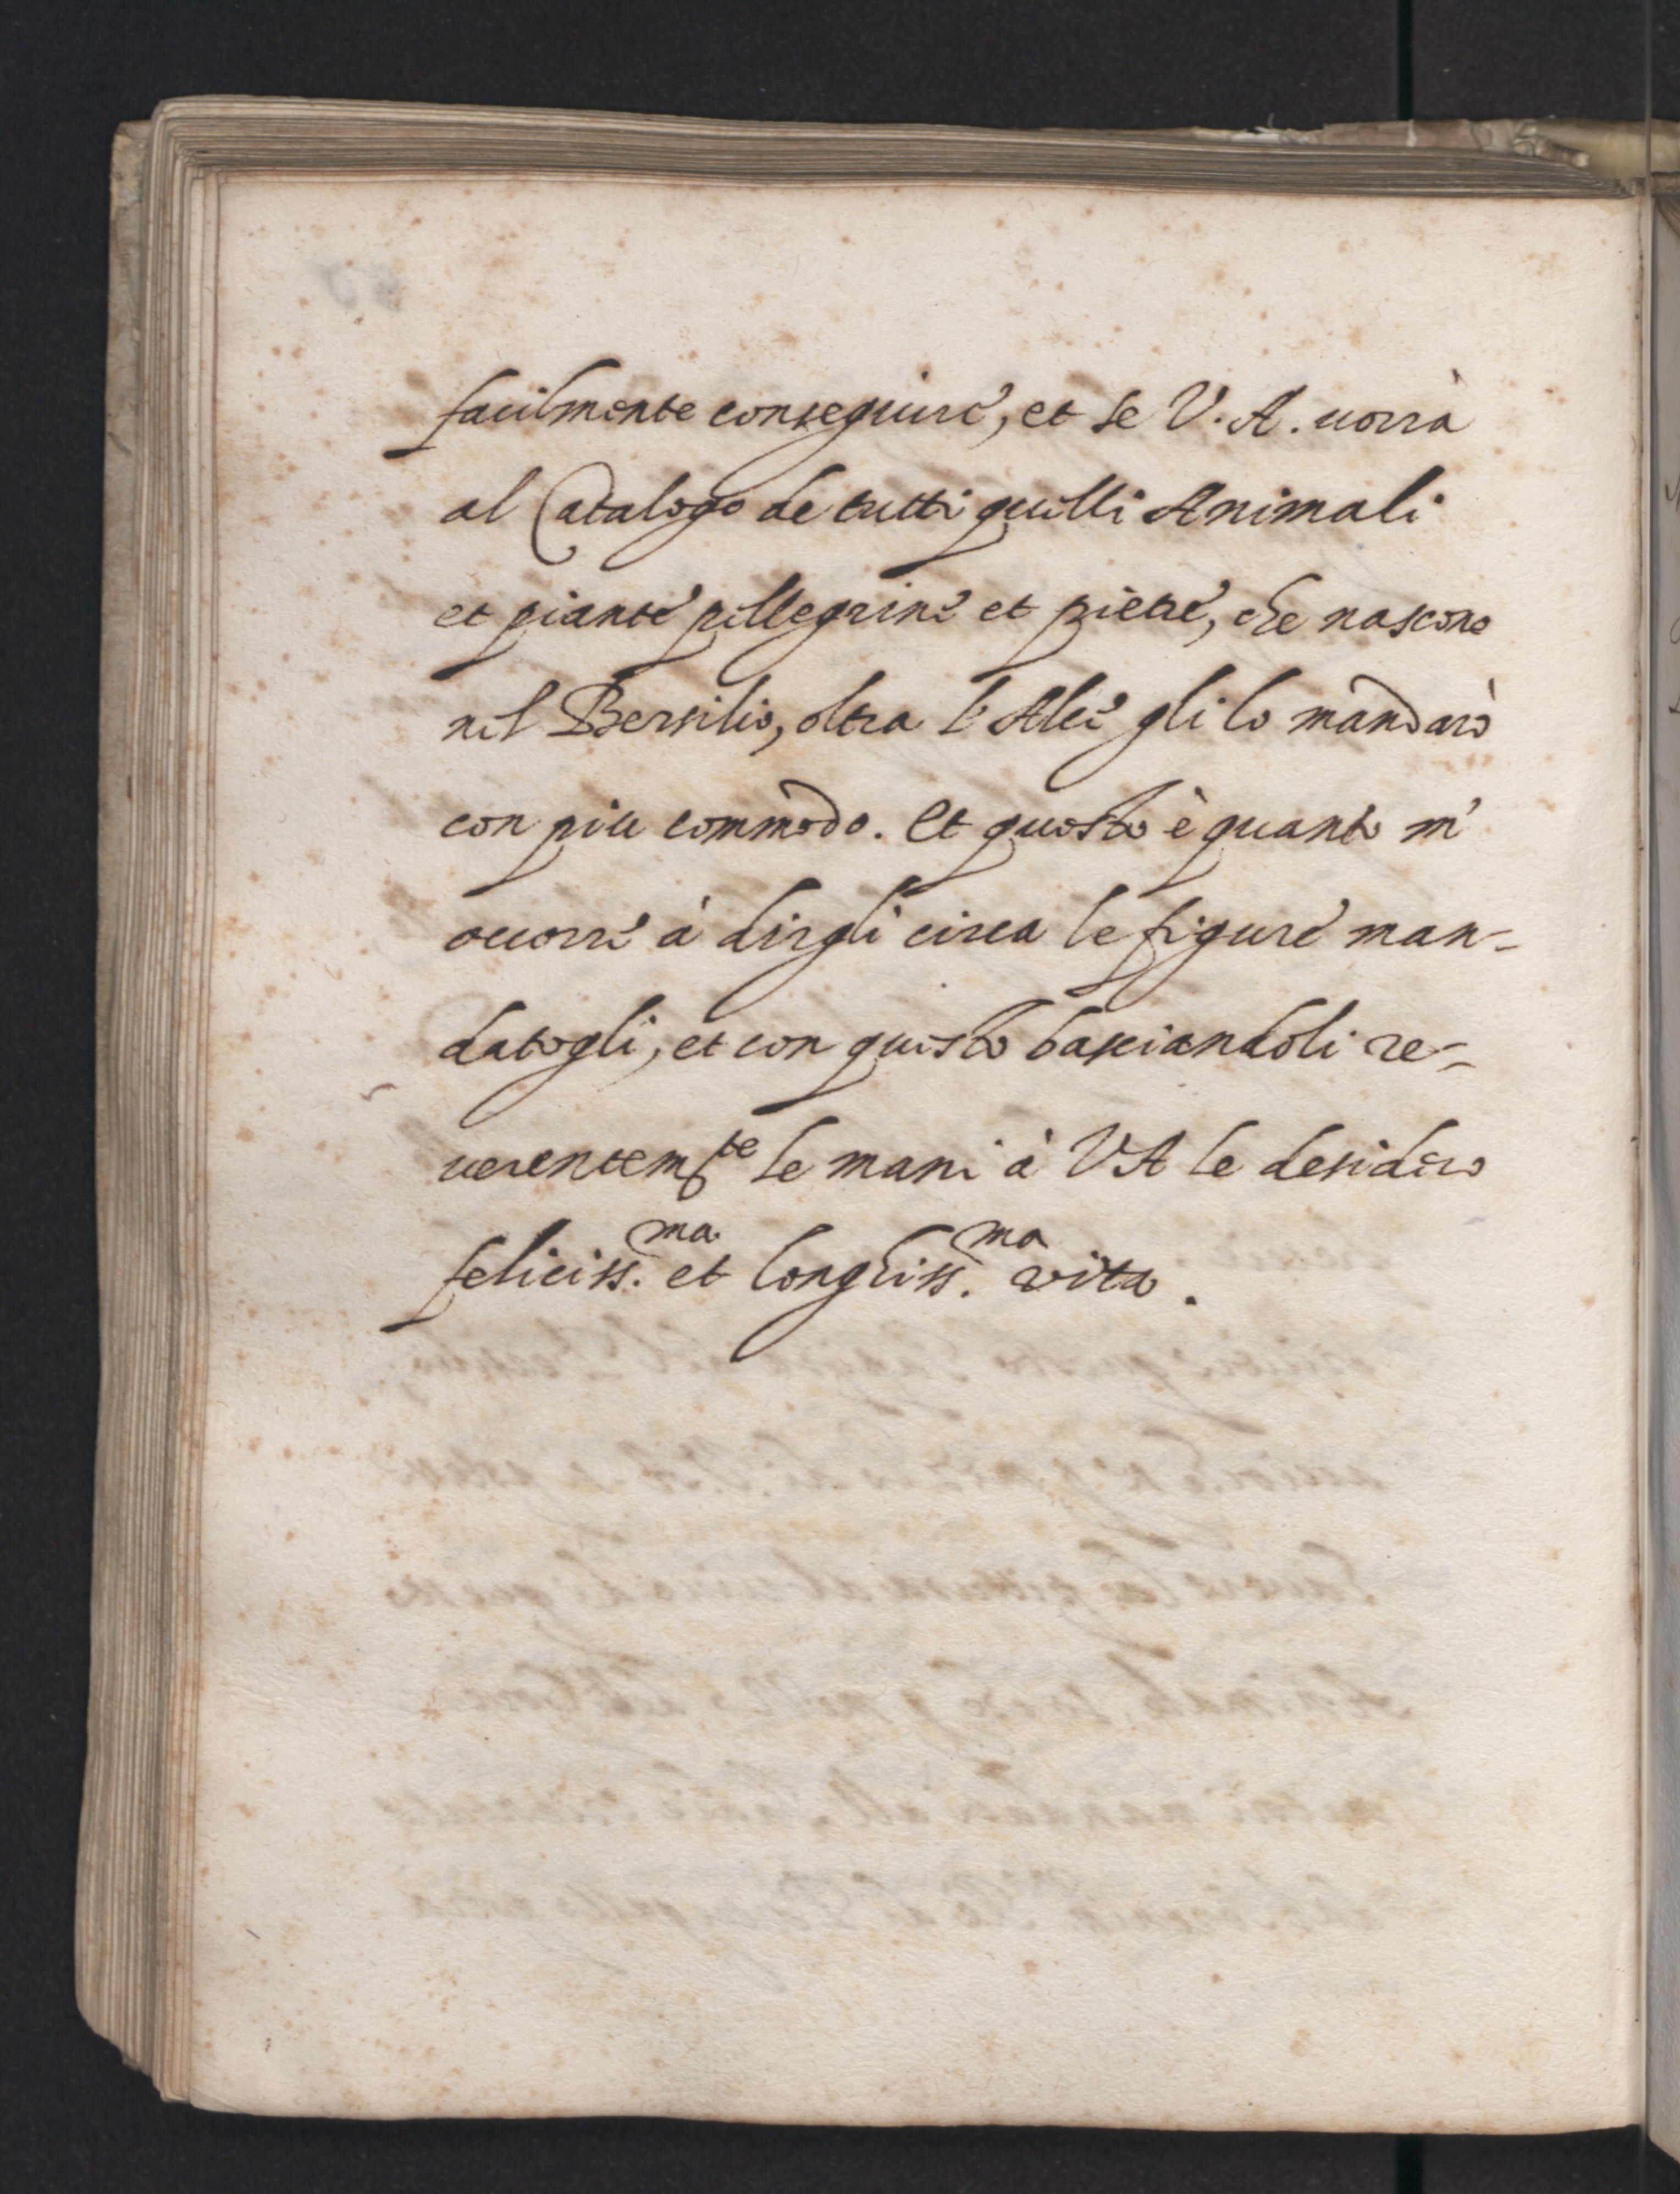 facilmente conseguire, et se V. A. uorrà
al Catalogo de tutti quelli Animali
et piante pellegrine et pietre, che nascono
nel Bersilio, oltra l'Alce gli lo mandarò
con piu commodo. Et questo è quanto m'
occorre à dirgli circa le figure man=
datogli, et con questo basciandoli re=
uerentem.te le mani à VA le desidero
feliciss.ma et longhiss.ma vita.